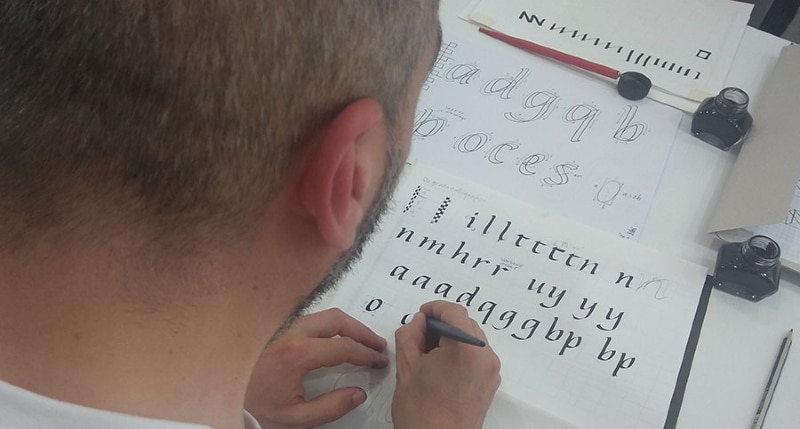 a d g q b
p o c e s
i l l t t t t n n m
n m h r r u y y y
a a a d q g g b p b p
o